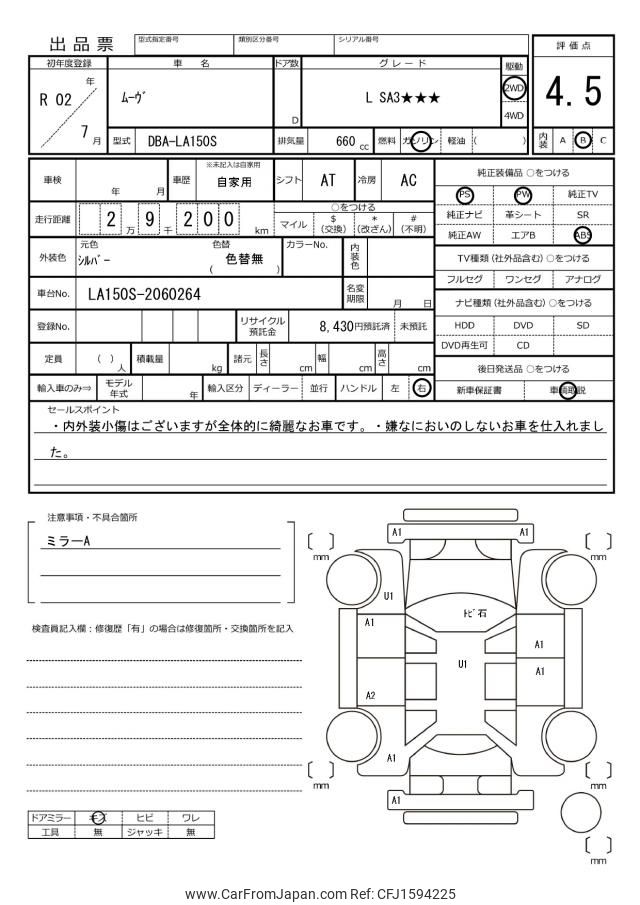 出品票 型式指定番号 類別区分番号 シリアル番号 評価点
初年度登録 車名 ドア数 グレード 駆動
R 02 年 ﾑｰｳﾞ D L SA3★★★ 2WD 4.5
7 月 4WD
型式 DBA-LA150S 排気量 660 cc 燃料 ガソリン 軽油 ( ) 内装 A B C
車検 年 月 車歴 ※未記入は自家用 自家用 シフト AT 冷房 AC 純正装備品 ○をつける
PS PW 純正TV
走行距離 2 万 9 千 2 0 0 km ○をつける
マイル $ (交換) * (改ざん) # (不明) 純正ナビ 革シート SR
純正AW エアB ABS
外装色 元色 ｼﾙﾊﾞｰ 色替 ( 色替無 ) カラーNo. 内装色
TV種類 (社外品含む) ○をつける
フルセグ ワンセグ アナログ
車台No. LA150S-2060264 名変期限 月 日
ナビ種類 (社外品含む) ○をつける
登録No. リサイクル預託金 8,430円預託済 未預託
HDD DVD SD
DVD再生可 CD
定員 ( ) 人 積載量 kg 諸元 長さ cm 幅 cm 高さ cm
後日発送品 ○をつける
輸入車のみ⇒ モデル年式 年 輸入区分 ディーラー 並行 ハンドル 左 右 新車保証書 車輌取説
セールスポイント
・内外装小傷はございますが全体的に綺麗なお車です。・嫌なにおいのしないお車を仕入れまし
た。
注意事項・不具合箇所
ミラーA
検査員記入欄：修復歴「有」の場合は修復箇所・交換箇所を記入
A1 A1
mm mm
U1
ﾄﾋﾞ石
A1
A1
U1
A1
A2
A1
mm mm
A1
mm
ドアミラー キズ ヒビ ワレ
工具 無 ジャッキ 無
www.CarFromJapan.com Ref: CFJ1594225